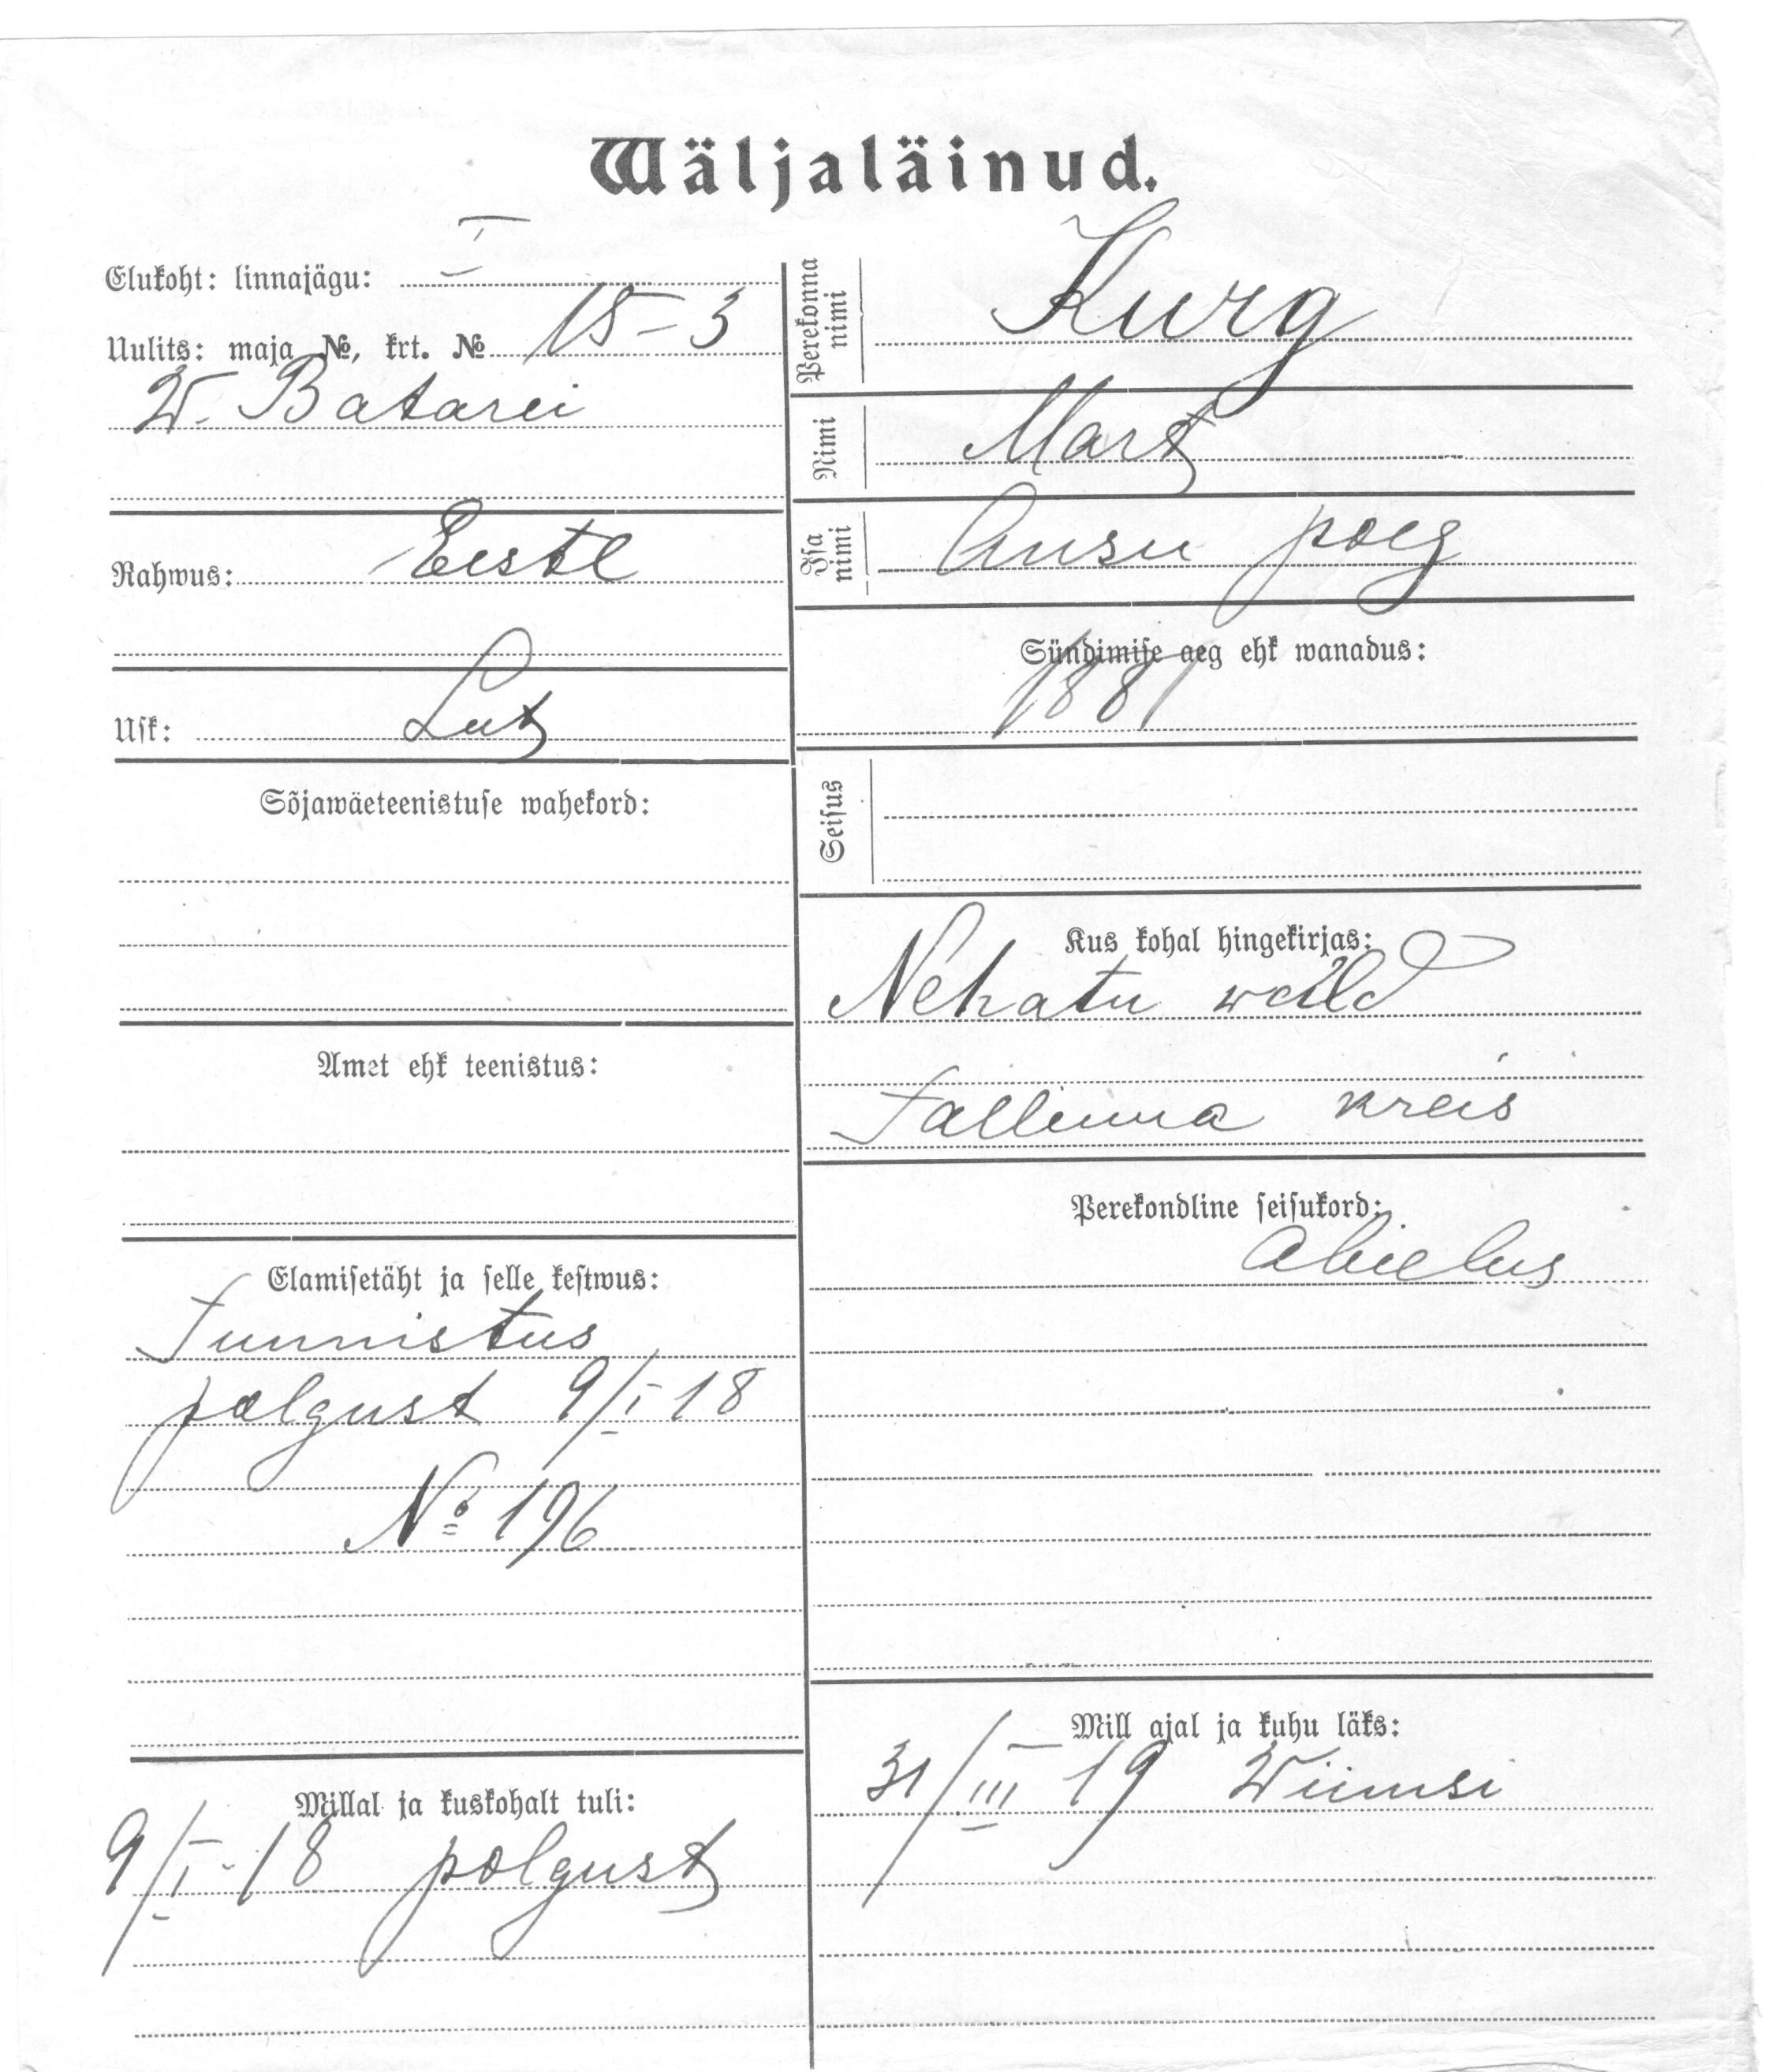 Wäljaläinud.
Elukoht: linnajägu: I
Uulits: maja №, krt. № 15-3
W. Batarei
Rahwus: Eestl
Usk: Lut
Sõjawäeteenistuse wahekord:
Amet ehk teenistus:
Elamisetäht ja selle kestwus:
Tunnistus
polgust 9/I 18
№ 196
Millal ja kuskohalt tuli:
9/I-18 polgust
Perekonna nimi Kurg
Nimi Mart
Isa nimi Ansu poeg
Sündimise aeg ehk wanadus:
1881
Seisus
Kus kohal hingekirjas:
Nehatu wald
Tallinna kreis
Perekondline seisukord:
Abielus
Mill ajal ja kuhu läks:
31/III 19 Wiimsi